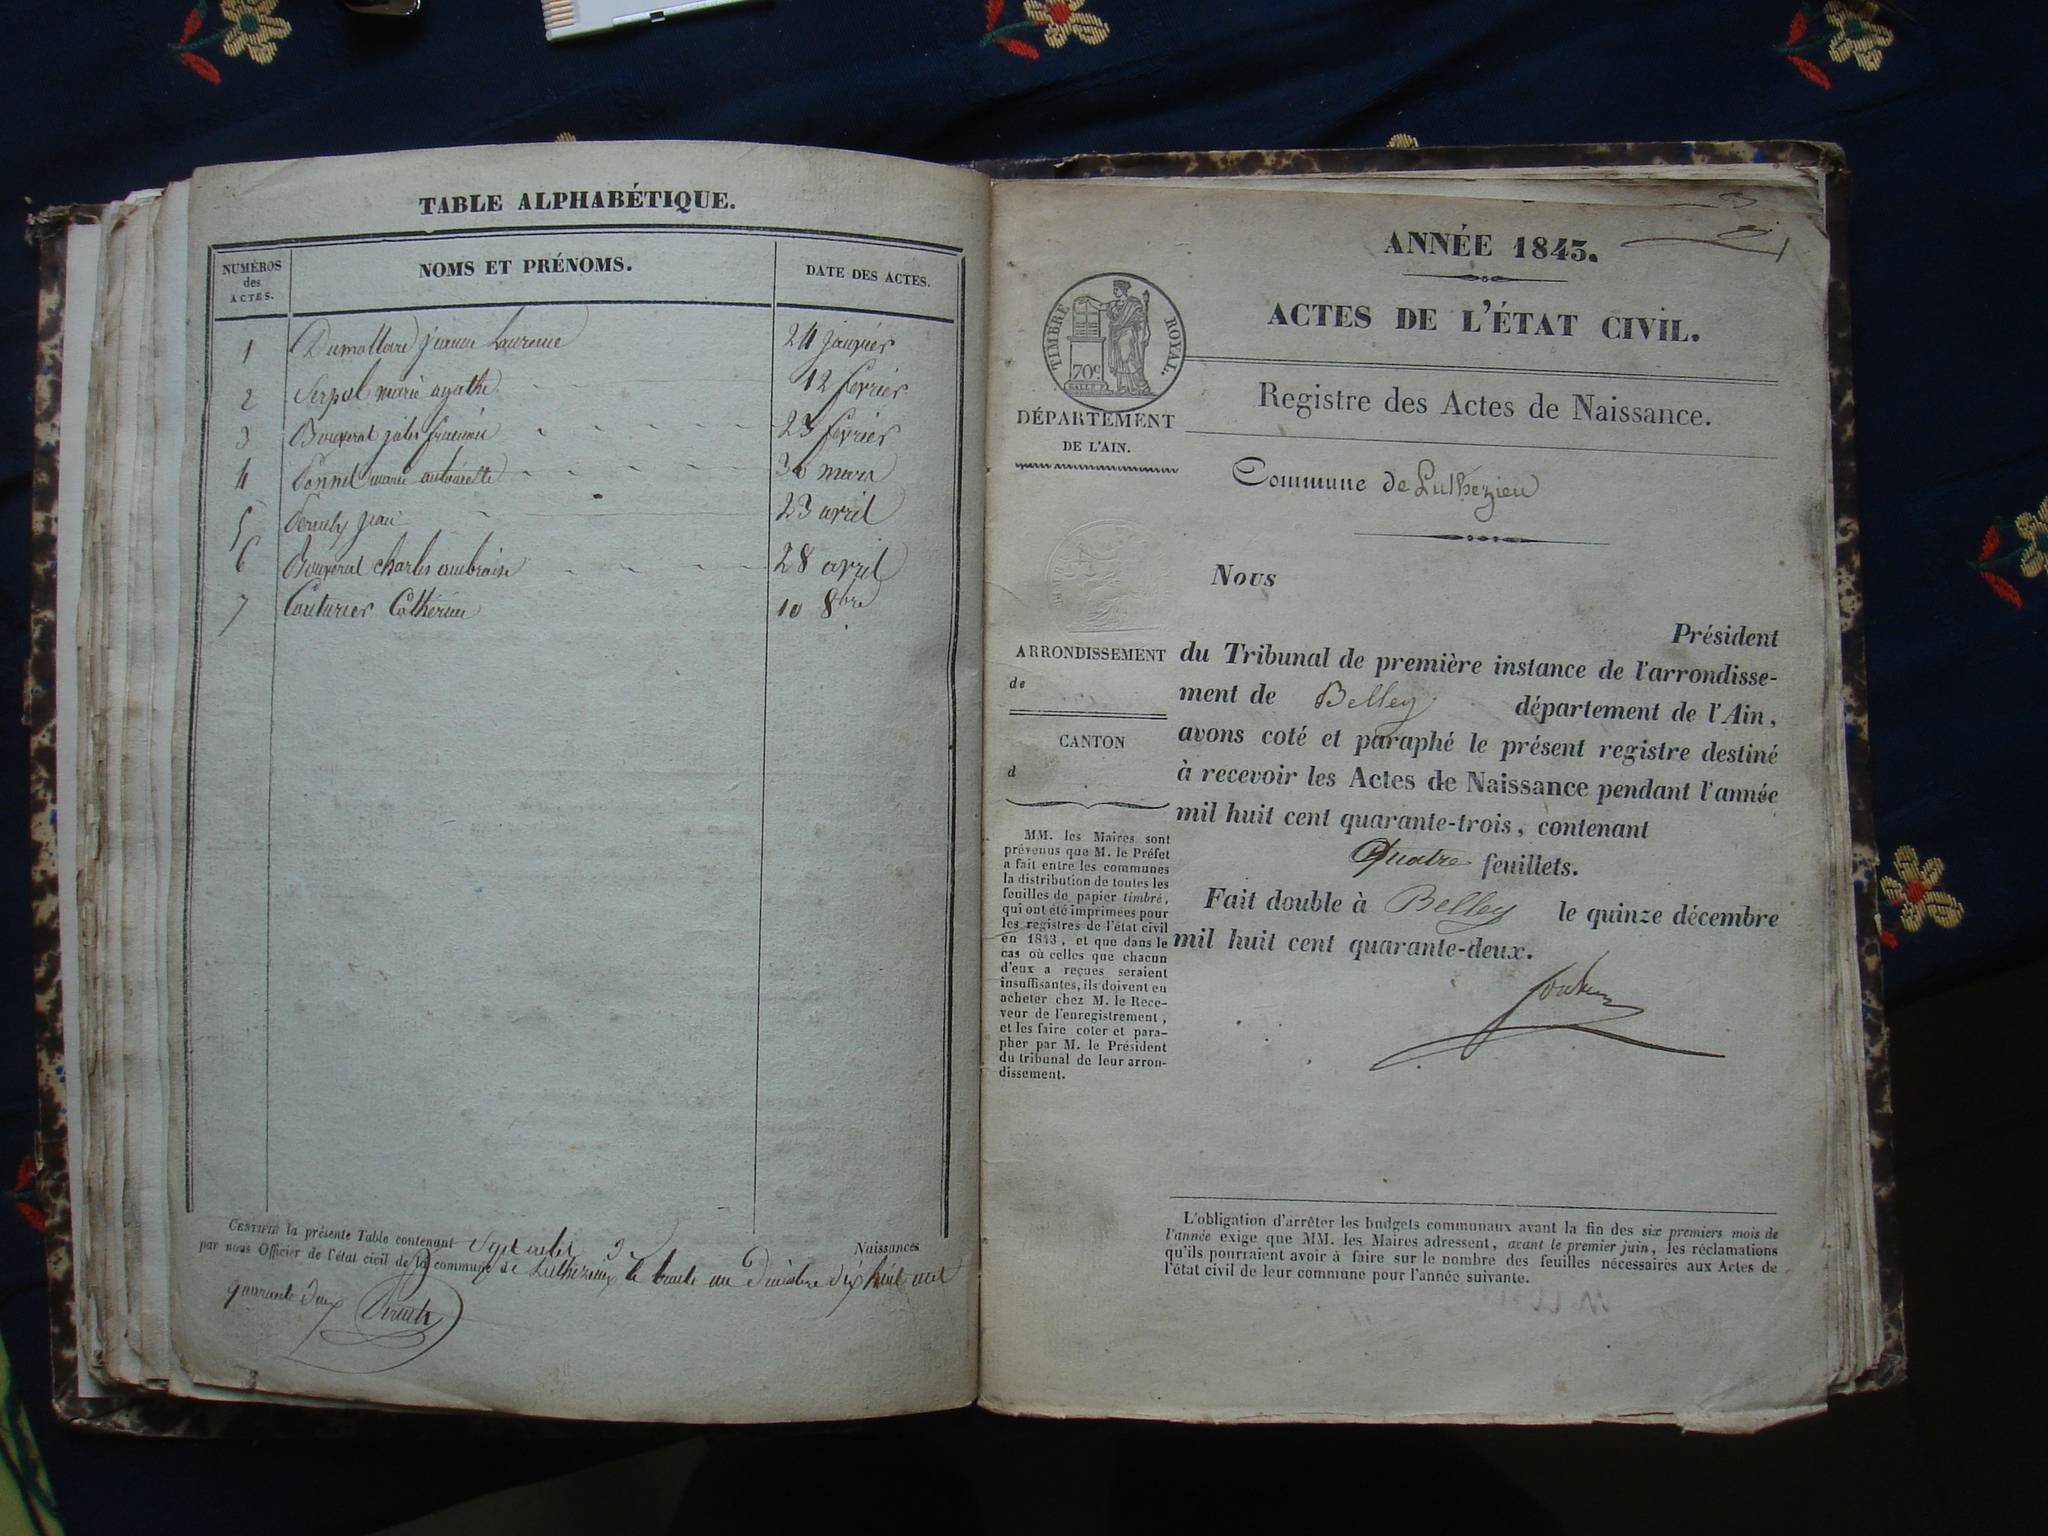 TABLE ALPHABÉTIQUE.
NUMÉROS des ACTES.
NOMS ET PRÉNOMS.
DATE DES ACTES.
1 Dumollard jeanne Laurence 24 janvier
2 Serpol marie agathe 12 fevrier
3 Bouverat jules 23 fevrier
4 marie antoinette 30 mars
5 jean 23 avril
6 Bouverat charles ambroise 28 avril
7 Couturier Cathérine 10 8bre
CERTIFIÉ la présente Table contenant Sept actes de Naissances
par nous Officier de l'état civil de la commune de Luthezieu, le trente un dix huit cent
quarante deux
ANNÉE 1843.
ACTES DE L'ÉTAT CIVIL.
TIMBRE ROYAL.
70c
Registre des Actes de Naissance.
DÉPARTEMENT
DE L'AIN.
Commune de Luthezieu
Nous
Président
du Tribunal de première instance de l'arrondisse-
ment de Belley département de l'Ain,
avons coté et paraphé le présent registre destiné
à recevoir les Actes de Naissance pendant l'année
mil huit cent quarante-trois, contenant
Quatre feuillets.
Fait double à Belley le quinze décembre
mil huit cent quarante-deux.
ARRONDISSEMENT
de
CANTON
d
MM. les Maires sont
prévenus que M. le Préfet
a fait entre les communes
la distribution de toutes les
feuilles de papier timbré,
qui ont été imprimées pour
les registres de l'état civil
en 1843, et que dans le
cas où celles que chacun
d'eux a reçues seraient
insuffisantes, ils doivent en
acheter chez M. le Rece-
veur de l'enregistrement,
et les faire coter et para-
pher par M. le Président
du tribunal de leur arron-
dissement.
L'obligation d'arrêter les budgets communaux avant la fin des six premiers mois de
l'année exige que MM. les Maires adressent, avant le premier juin, les réclamations
qu'ils pourraient avoir à faire sur le nombre des feuilles nécessaires aux Actes de
l'état civil de leur commune pour l'année suivante.